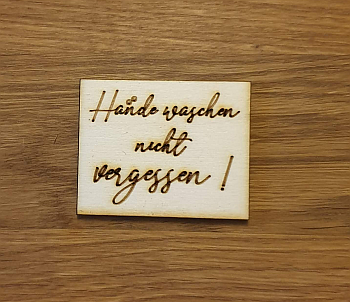 Hände waschen
nicht
vergessen !